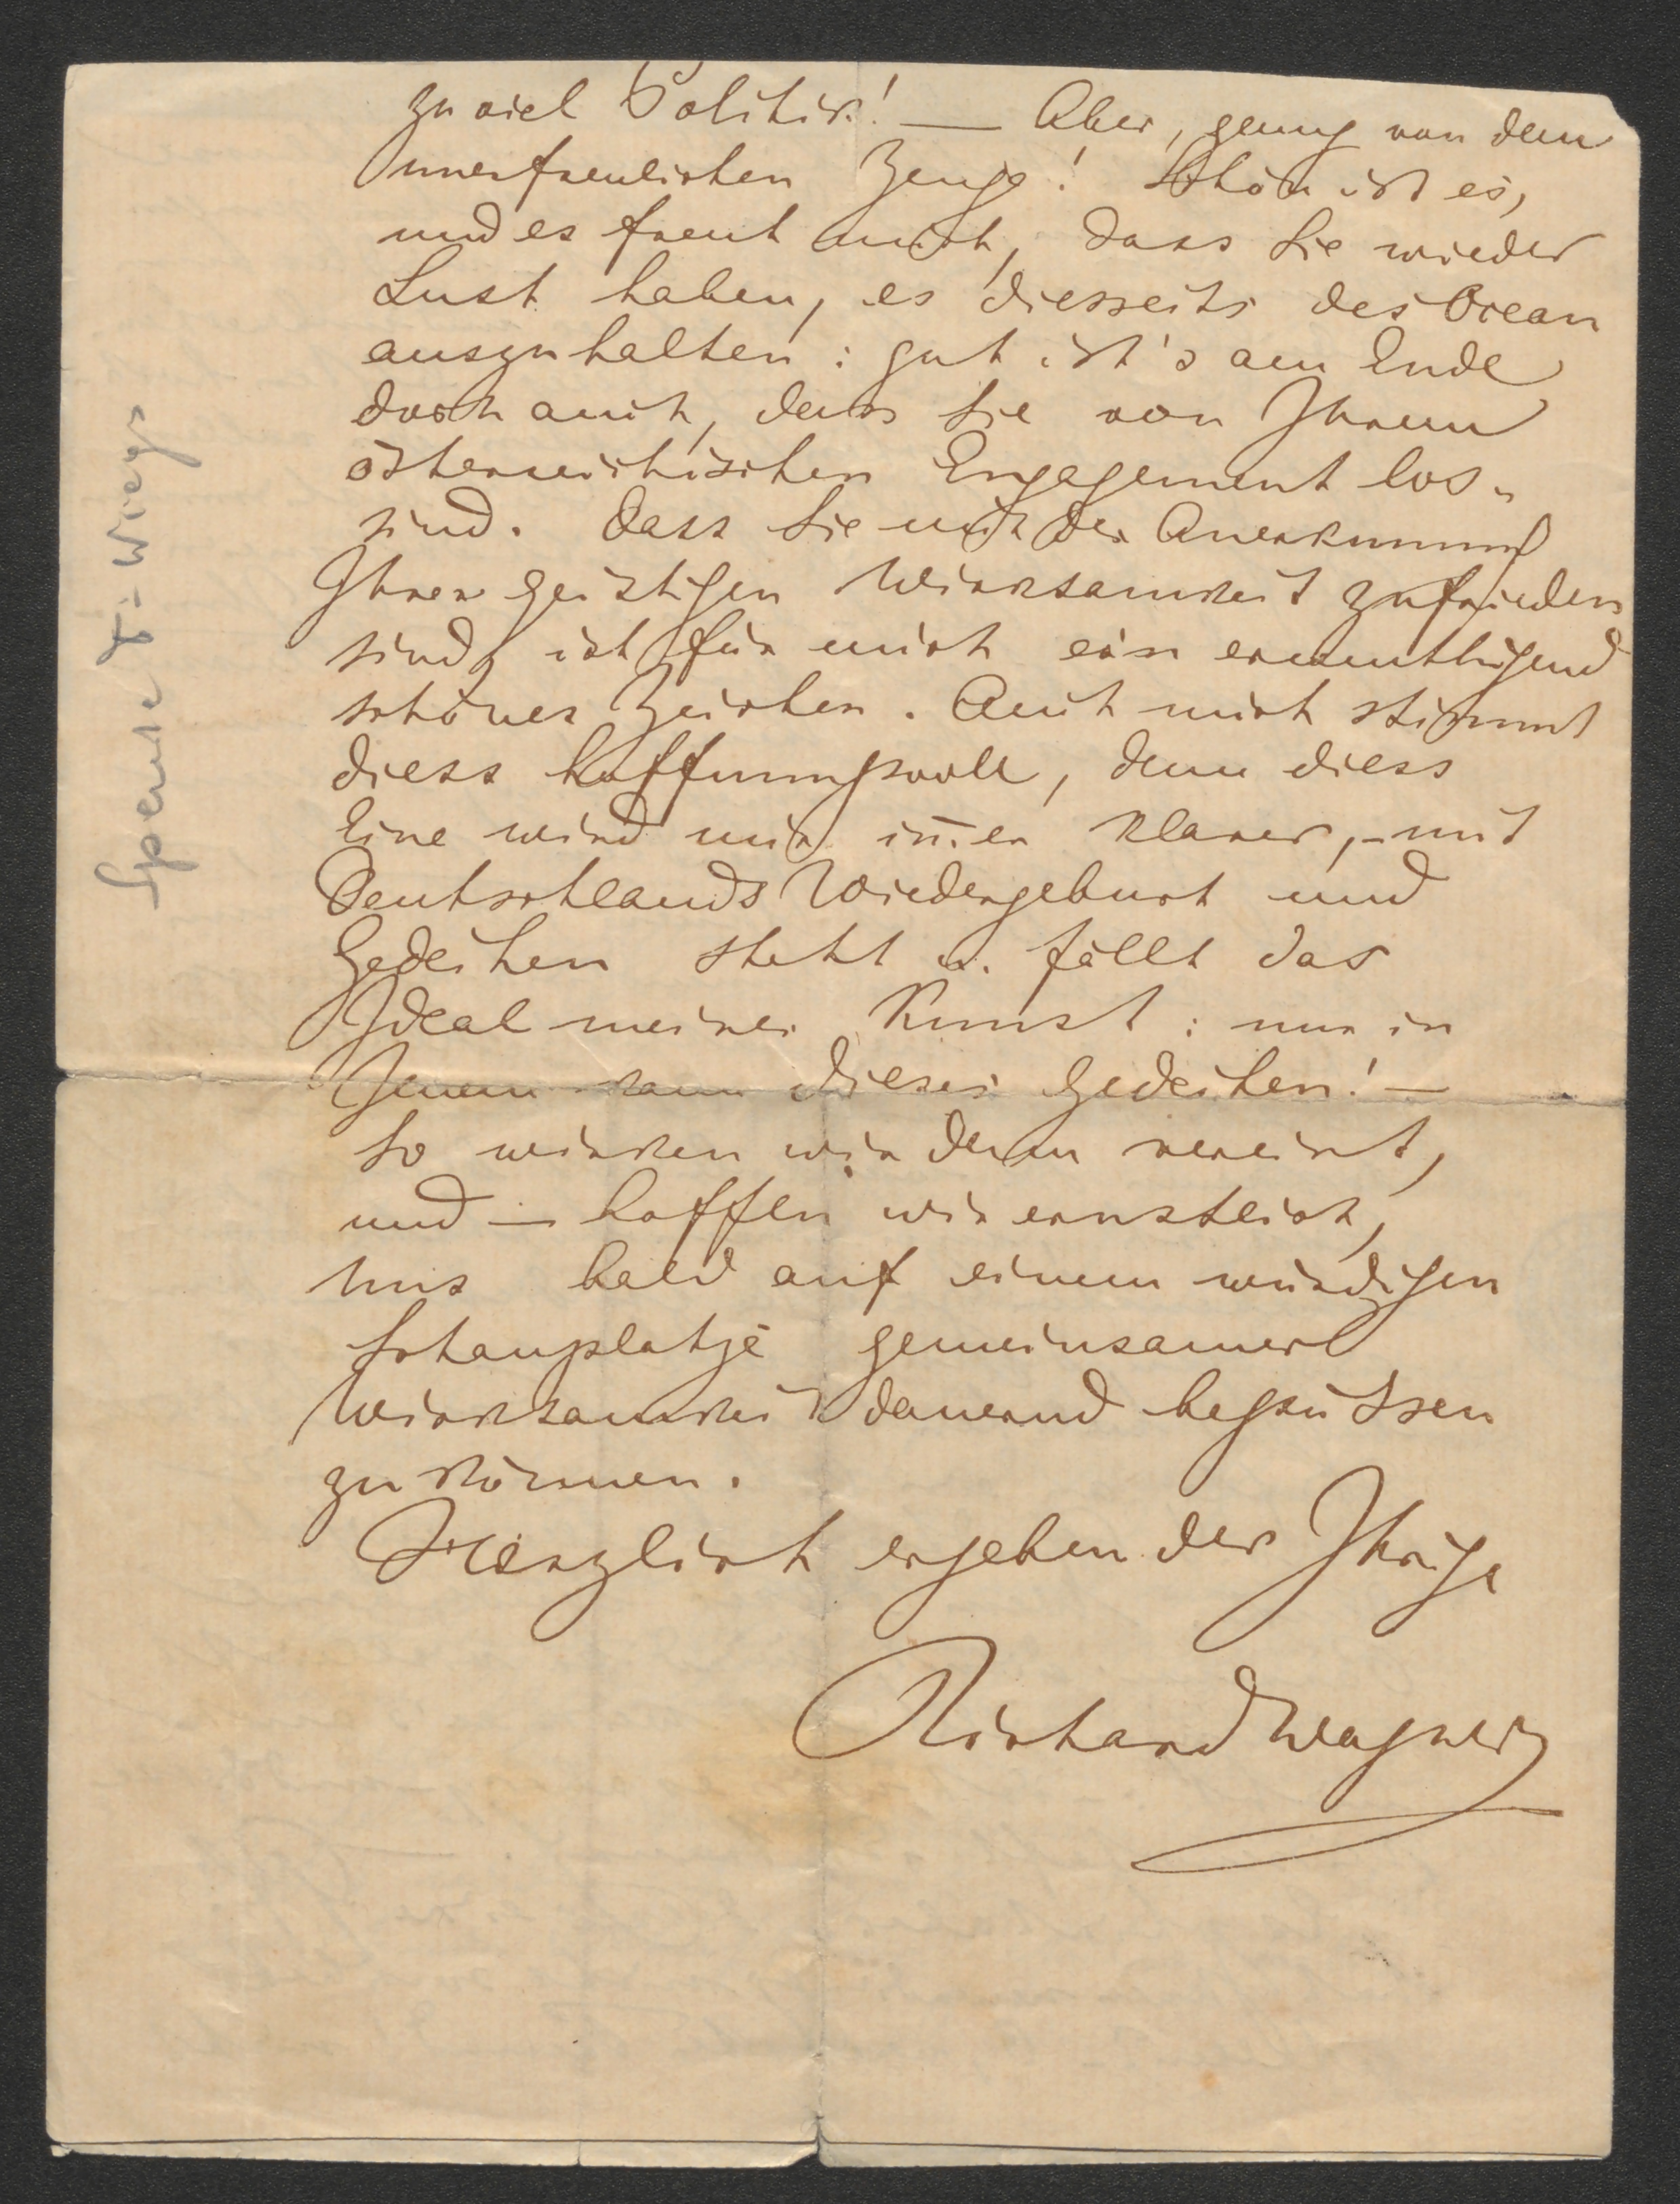 zu viel Politik! — Aber, genug von dem
unerfreulichen Zeuge! Schön ist es,
und es freut mich, dass Sie wieder
Lust haben, es diesseits des Ocean
auszuhalten: gut ist's am Ende
doch auch, dass Sie von Ihrem
österreichischen Engagement los-
sind. Dass Sie mit der Anerkennung
Ihrer geistigen Wirksamkeit zufrieden
sind, ist für mich ein ermuthigend
schönes Zeichen. Auch mich stimmt
diess hoffnungsvoll, denn diess
Eine wird mir im̄er klarer, - mit
Deutschlands Wiedergeburt und
Gedeihen steht u. fällt das
Ideal meiner Kunst: nur in
Jenem kann dieses gedeihen! —
So wirken wir denn vereint,
und — hoffen wir ernstlich,
uns bald auf einem würdigen
Schauplatze gemeinsamer
Wirksamkeit dauernd begrüssen
zu können.
Herzlich ergeben der Ihrige
Richard Wagner
Spende